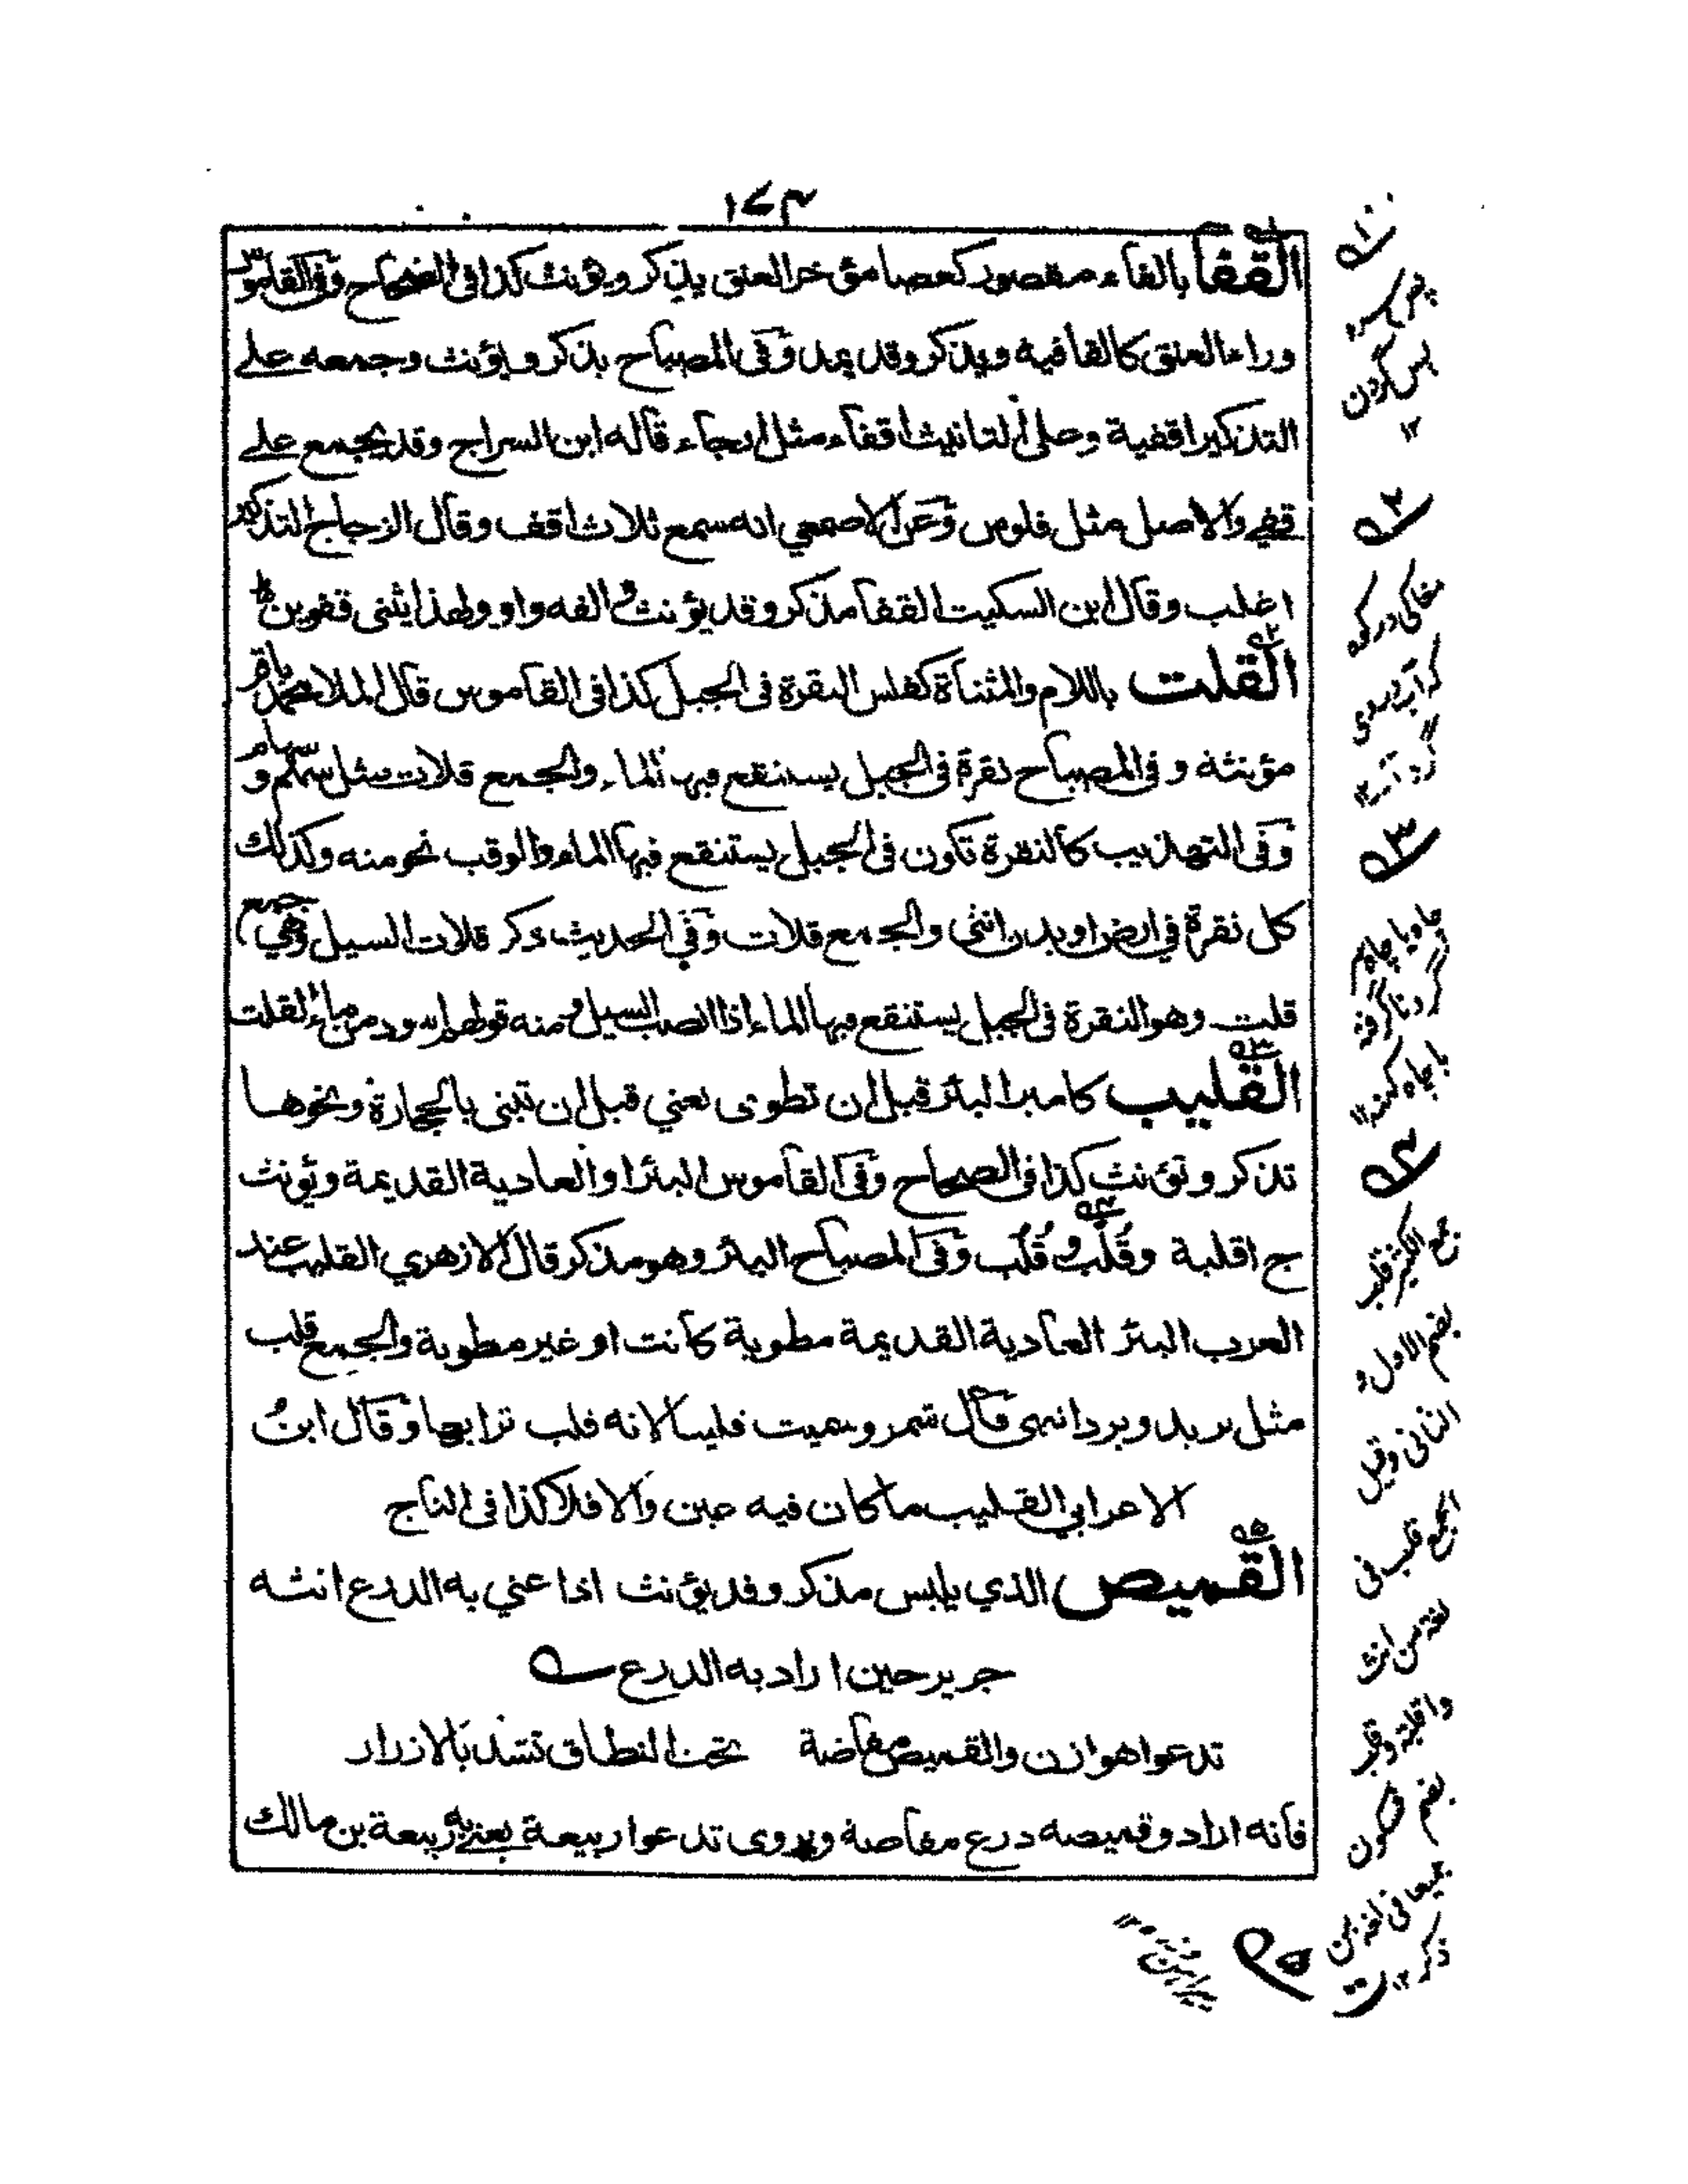 ١٧٤
القفا بالفاء مقصور كعصا مؤخر العنق يذكر ويؤنث كذا فى الصحاح وفى القاموس
وراء العنق كالقافية ويذكر وقد يمد وفى المصباح يذكر ويؤنث وجمعه على
التذكير اقفية وعلى التانيث اقفاء مثل ارجاء قاله ابن السراج وقد يجمع على
قفى والاصل مثل فلوس وعن الاصمعي انه سمع ثلاث اقف وقال الزجاج التذكير
اغلب وقال ابن السكيت القفا مذكر وقد يؤنث والفه واو ولهذا يثنى قفوين
القلت باللام والمثناة كفلس النقرة فى الجبل كذا فى القاموس قال الملا محمد باقر
مؤنثة وفى المصباح نقرة فى الجبل يستنقع فيها الماء والجمع قلات مثل سهم وسهام
وفى التهذيب كالنقرة تكون فى الجبل يستنقع فيها الماء والوقب نحو منه وكذلك
كل نقرة في ارض او بدن انثى والجمع قلات وفي الحديث ذكر قلات السيل وهي جمع
قلت وهو النقرة فى الجبل يستنقع فيها الماء اذا انصب السيل ومنه قولهم ابرد من ماء القلت
القليب كامير البئر قبل ان تطوى يعني قبل ان تبنى بالحجارة ونحوها
تذكر وتؤنث كذا فى الصحاح وفى القاموس البئر او العادية القديمة ويؤنث
ج اقلبة وقُلُب وقُلْب وفى المصباح البئر وهو مذكر قال الازهري القليب عند
العرب البئر العادية القديمة مطوية كانت او غير مطوية والجمع قلب
مثل بريد وبرد انتهى قال شمر وسميت قليبا لانه قلب ترابها وقال ابن
الاعرابي القليب ما كان فيه عين والا فلا كذا فى التاج
القميص الذي يلبس مذكر وقد يؤنث اذا عني به الدرع انثه
جرير حين اراد به الدرع
تدعوا هوازن والقميص مفاضة تحت النطاق تشد بالازرار
فانه اراد وقميصه درع مفاضة ويروى تدعوا ربيعة يعني به ربيعة بن مالك
١
پس گردن
١٢
٢
٣
٤
جمع الكثير قلب
بضم الاول و
الثانى وقيل
الجمع قلب فى
لغة من انث
واقلبة وقلب
بضم فسكون
جميعا فى لغة من
ذكر ١٢ ت
٥